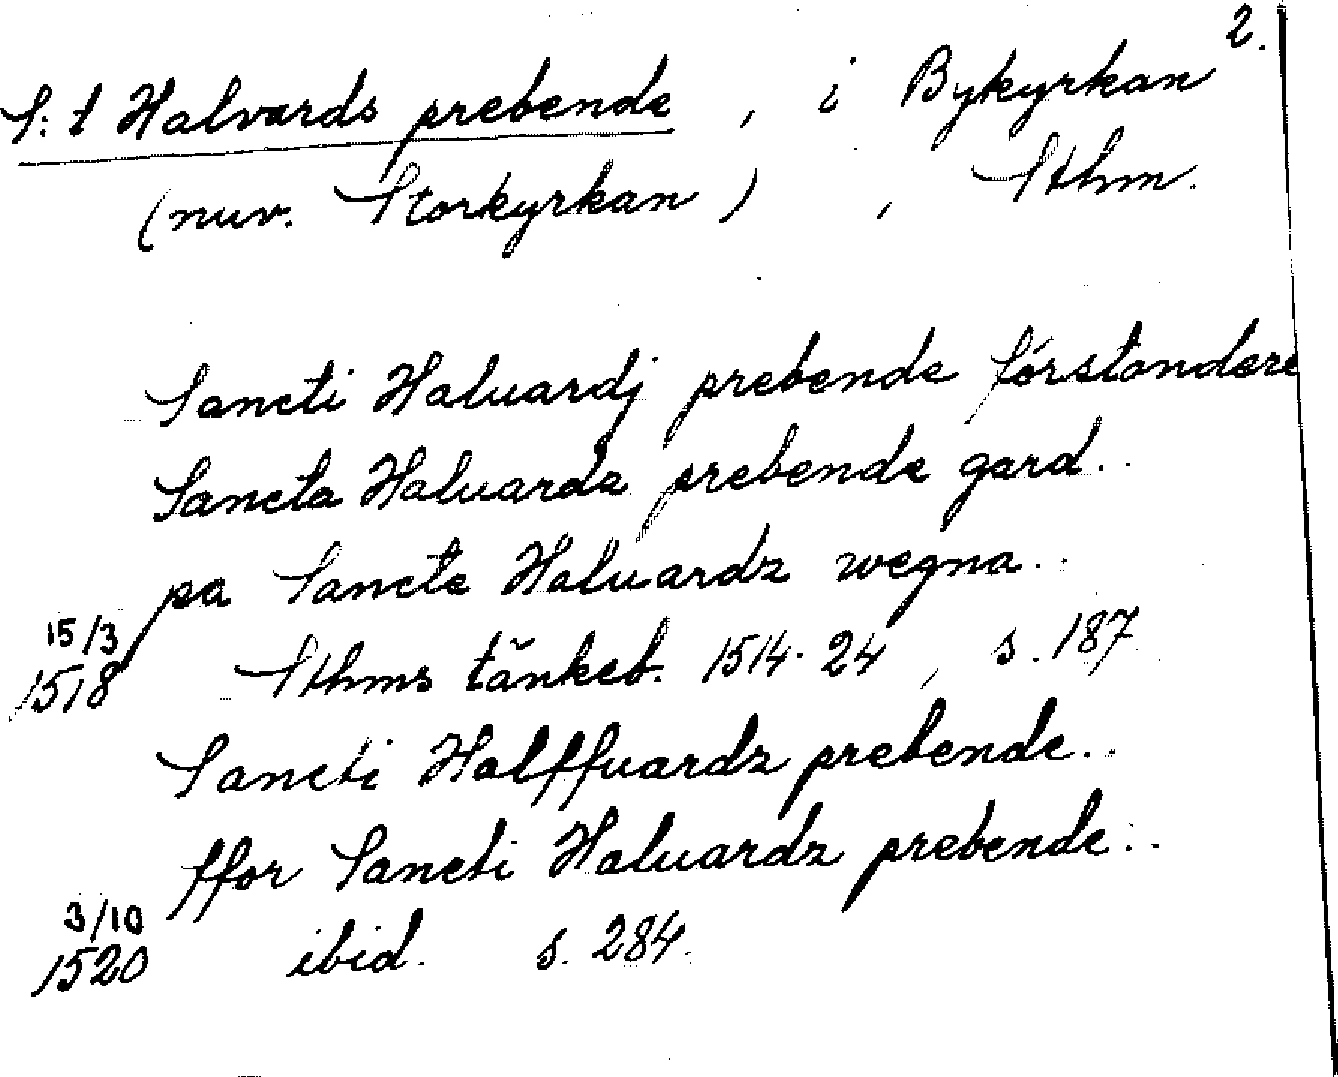 2.
S:t Halvards prebende, i Bykyrkan
(nuv. Storkyrkan), Sthm.
Sancti Haluardj prebende förstondere
Sancta Haluarda prebende gard..
pa Sancte Haluardz wegna..
15/3
1518 Sthms tänkeb. 1514-24, s. 187
Sancti Halffuardz prebende..
ffor Sancti Haluardz prebende..
3/10
1520 ibid. s. 284.